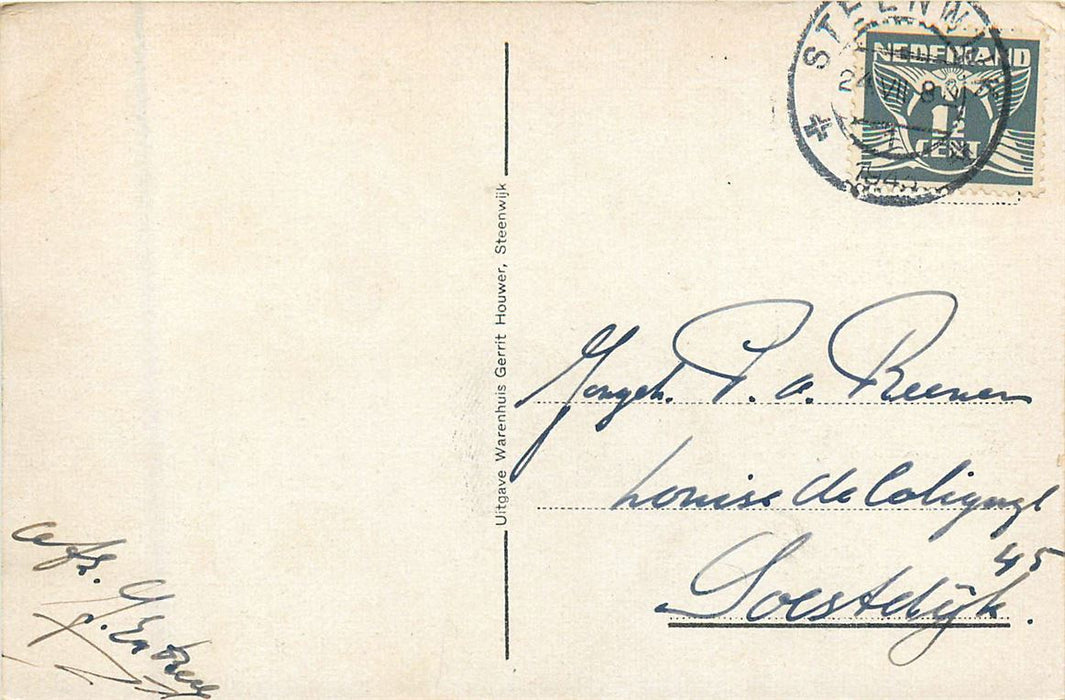 STEENWIJK
24 VII 8
1
194
NEDERLAND
1½
CENT
Uitgave Warenhuis Gerrit Houwer, Steenwijk
Jongeh. P. a. Reenen
Louise de Colignyl
45
Soestdijk.
afz.